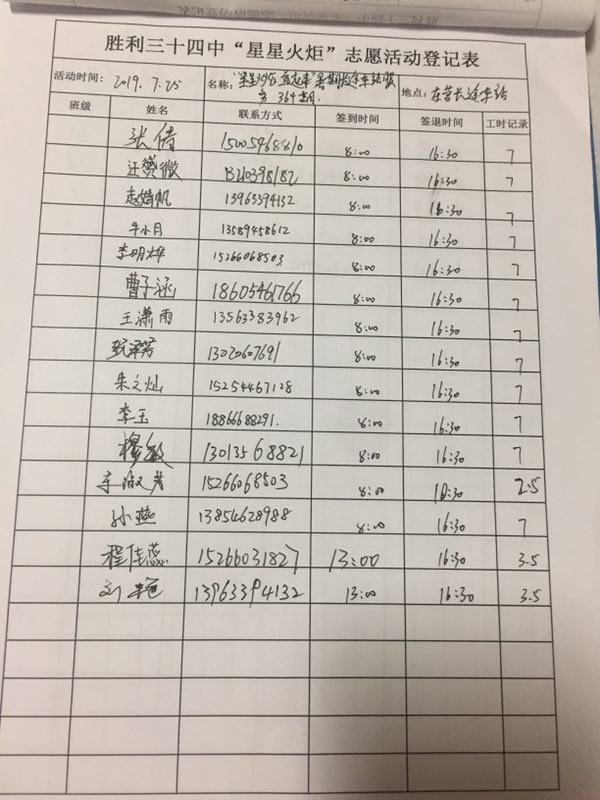 胜利三十四中“星星火炬”志愿活动登记表
活动时间: 2019.7.25 名称: 地点: 东营长途车站
班级 姓名 联系方式 签到时间 签退时间 工时记录
张倩 15005468810 8:00 16:30 7
8:00 16:30 7
13963394132 8:00 16:30 7
牛小月 13589458612 8:00 16:30 7
李明烨 15266068503 8:00 16:30 7
曹子涵 18605461766 8:00 16:30 7
王潇雨 13563383962 8:00 16:30 7
13020607691 8:00 16:30 7
朱文灿 15254467128 8:00 16:30 7
李玉 18866688291. 8:00 16:30 7
穆敏 13013568821 8:00 16:30 7
15266068503 8:00 10:30 2.5
孙燕 13854628988 8:00 16:30 7
程佳蕊 15266031827 13:00 16:30 3.5
刘艳 13963394132 13:00 16:30 3.5